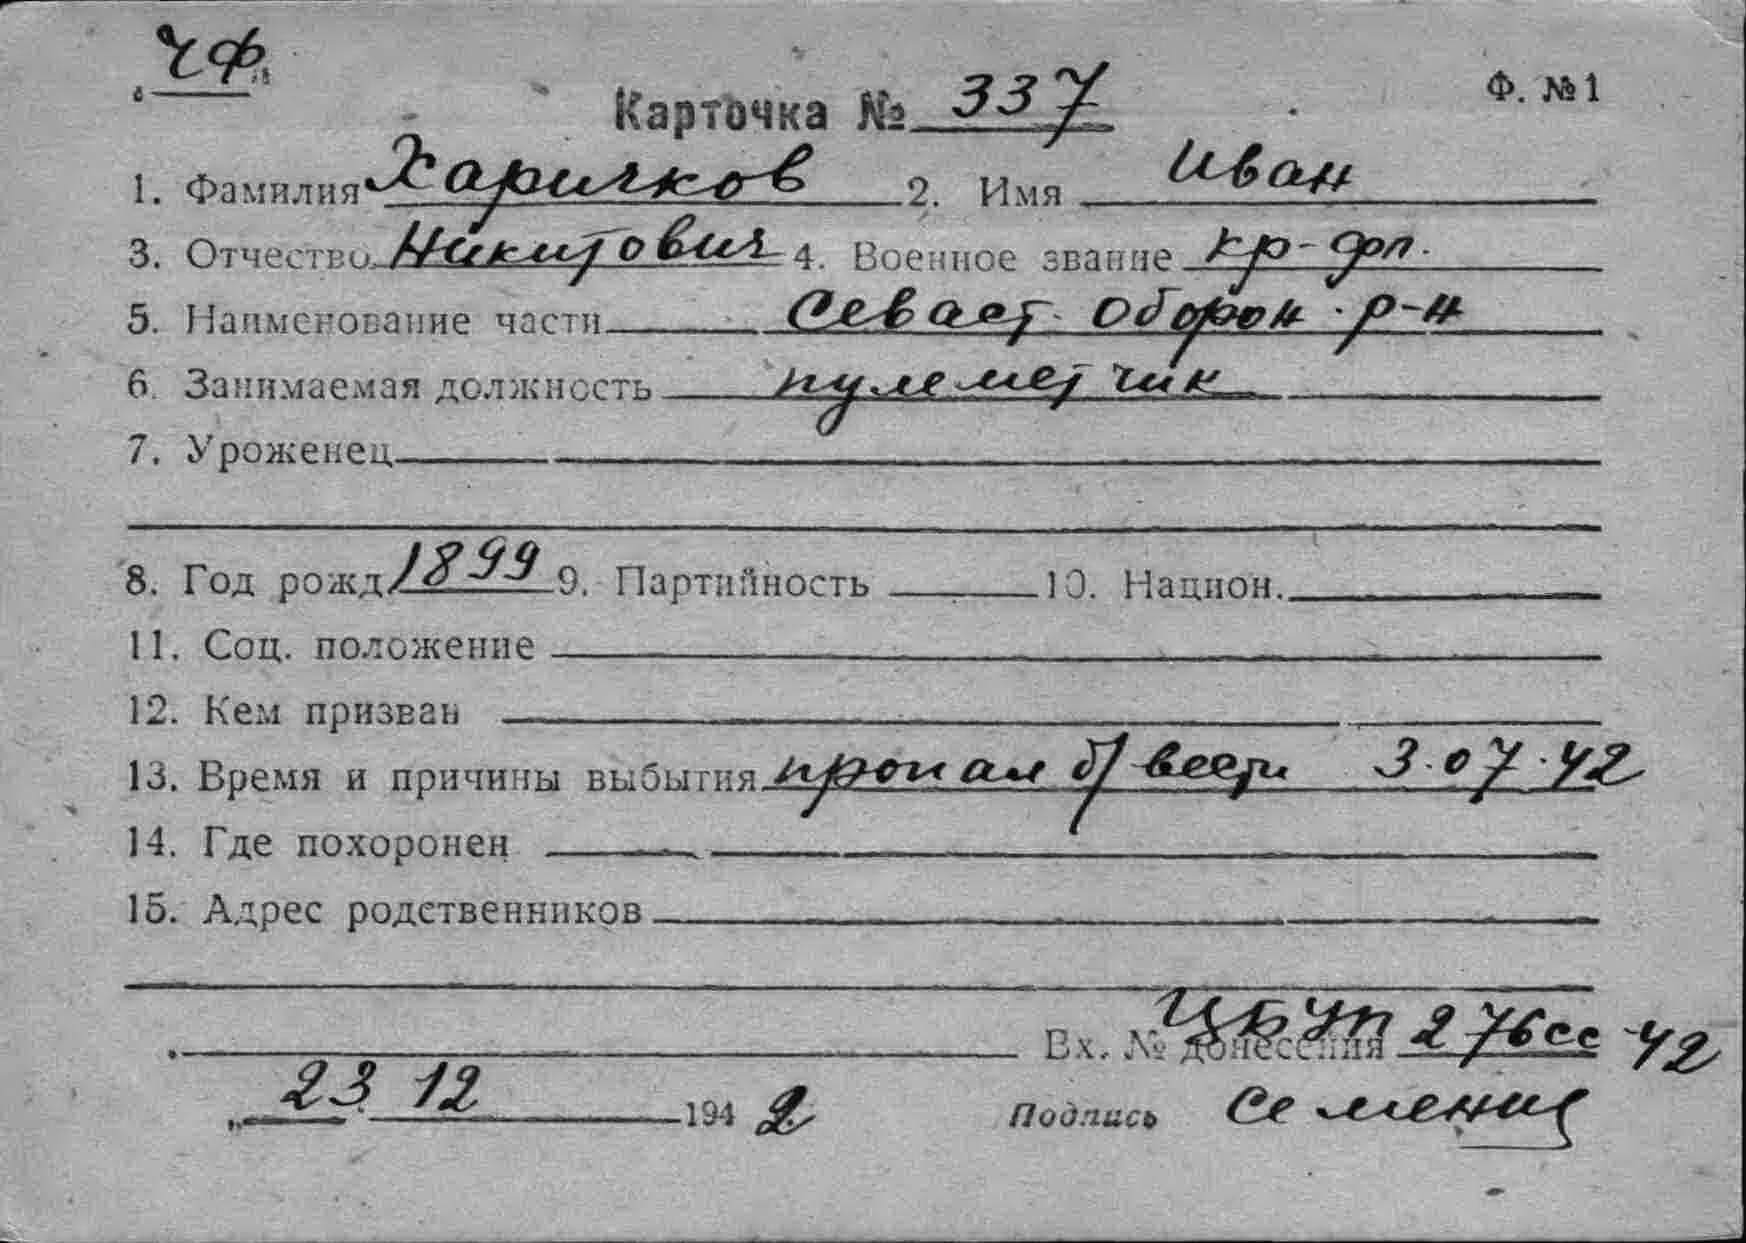 ЧФ
Карточка № 337 Ф. №1
1. Фамилия Харичков 2. Имя Иван
3. Отчество Никитович 4. Военное звание кр-фл.
5. Наименование части Севаст. Оборон. р-н
6. Занимаемая должность пулеметчик
7. Уроженец
8. Год рожд 1899 9. Партийность 10. Национ.
11. Соц. положение
12. Кем призван
13. Время и причины выбытия пропал б/вести 3.07.42
14. Где похоронен
15. Адрес родственников
Вх. № донесения ЦБУП 276сс-42
23 12 1942 Подпись